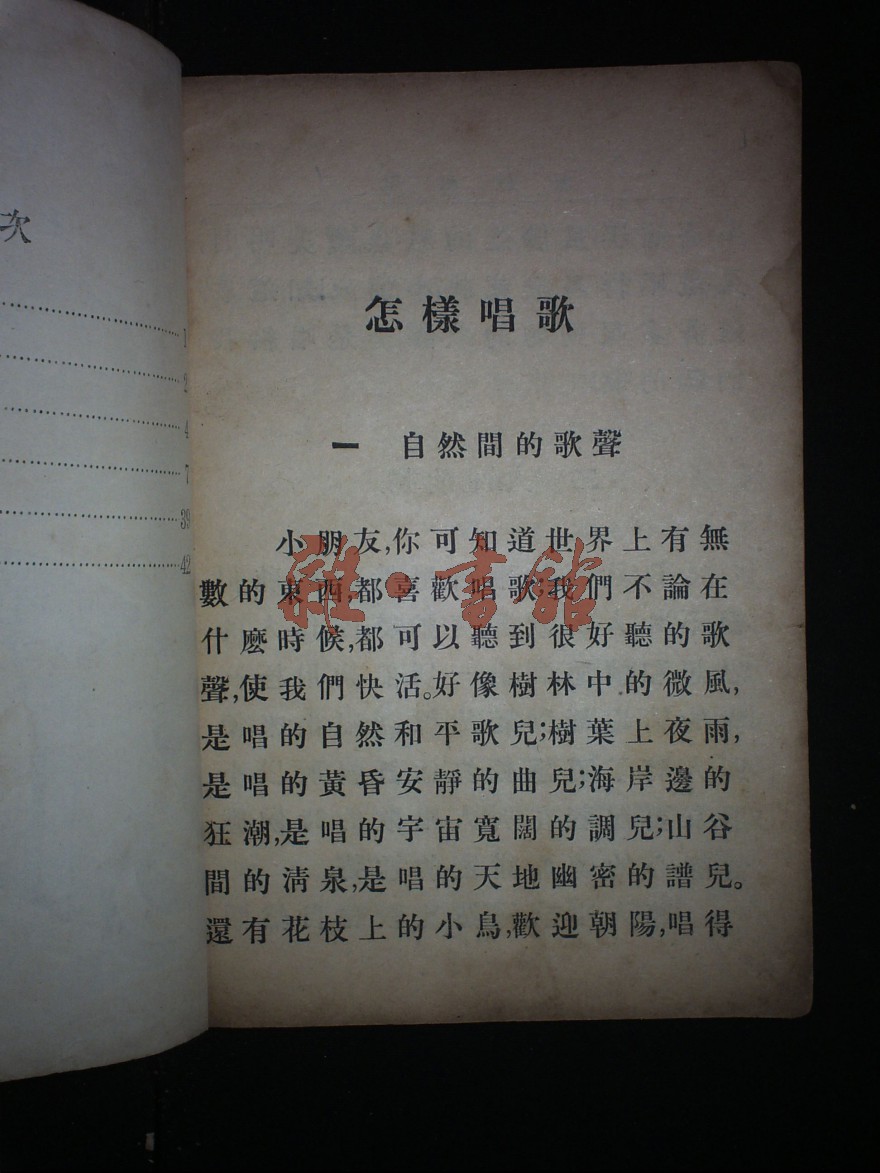 次
1
2
4
7
39
42
怎樣唱歌
一 自然間的歌聲
小朋友,你可知道世界上有無
數的東西,都喜歡唱歌;我們不論在
什麼時候,都可以聽到很好聽的歌
聲,使我們快活。好像樹林中的微風,
是唱的自然和平歌兒;樹葉上夜雨,
是唱的黃昏安靜的曲兒;海岸邊的
狂潮,是唱的宇宙寬闊的調兒;山谷
間的淸泉,是唱的天地幽密的譜兒。
還有花枝上的小鳥,歡迎朝陽,唱得
雜·書館